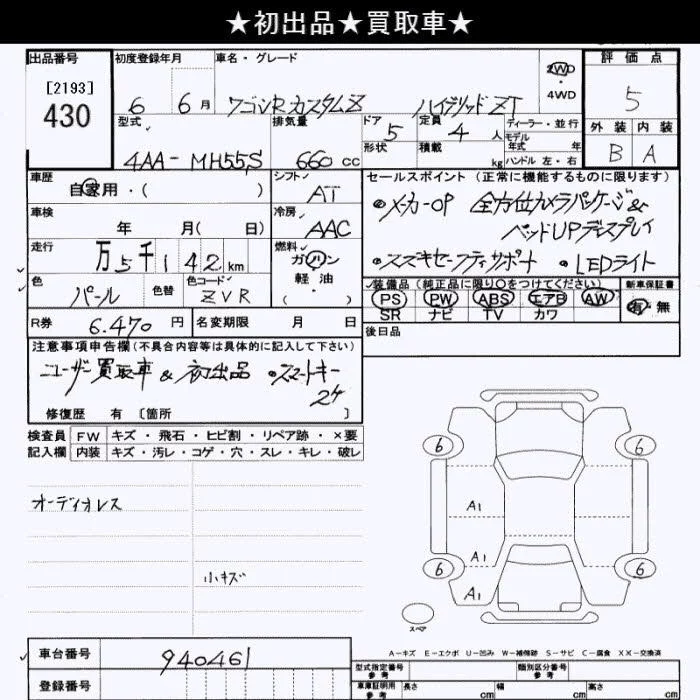 ★初出品★買取車★
出品番号
[2193]
430
初度登録年月
6 6月
車名・グレード
ワゴンRカスタムZ ハイブリッドZT
2WD
・
4WD
評価点
5
外装 内装
B A
型式
4AA-MH55S
排気量
660 cc
ドア
5
形状
定員
4人
積載 kg
ディーラー・並行
モデル
年式 年
ハンドル 左・右
車歴
自家用・( )
シフト
AT
セールスポイント (正常に機能するものに限ります)
●メーカーOP 全方位カメラパッケージ&
ヘッドUPディスプレイ
●スズキセーフティサポート ●LEDライト
車検
年 月( 日)
冷房
AAC
走行
万5千142km
燃料
ガソリン
軽油
( )
色
パール
色替
色コード
ZVR
装備品 (純正品に限り○をつけてください)
PS PW ABS エアB AW
SR ナビ TV カワ
新車保証書
有・無
R券 6.470円
名変期限 月 日
後日品
注意事項申告欄(不具合内容等は具体的に記入して下さい)
ユーザー買取車 & 初出品 ●スマートキー
2ケ
修復歴 有 [箇所 ]
検査員
記入欄
FW キズ・飛石・ヒビ割・リペア跡・×要
内装 キズ・汚レ・コゲ・穴・スレ・キレ・破レ
オーディオレス
小キズ
6 6
A1
A1
6 6
A1
スペア
A−キズ E−エクボ U−凹み W−補修跡 S−サビ C−腐食 XX−交換済
車台番号 940461
登録番号
型式指定番号
参考
類別区分番号
参考
車庫証明用
参考
長さ cm 幅 cm 高さ cm